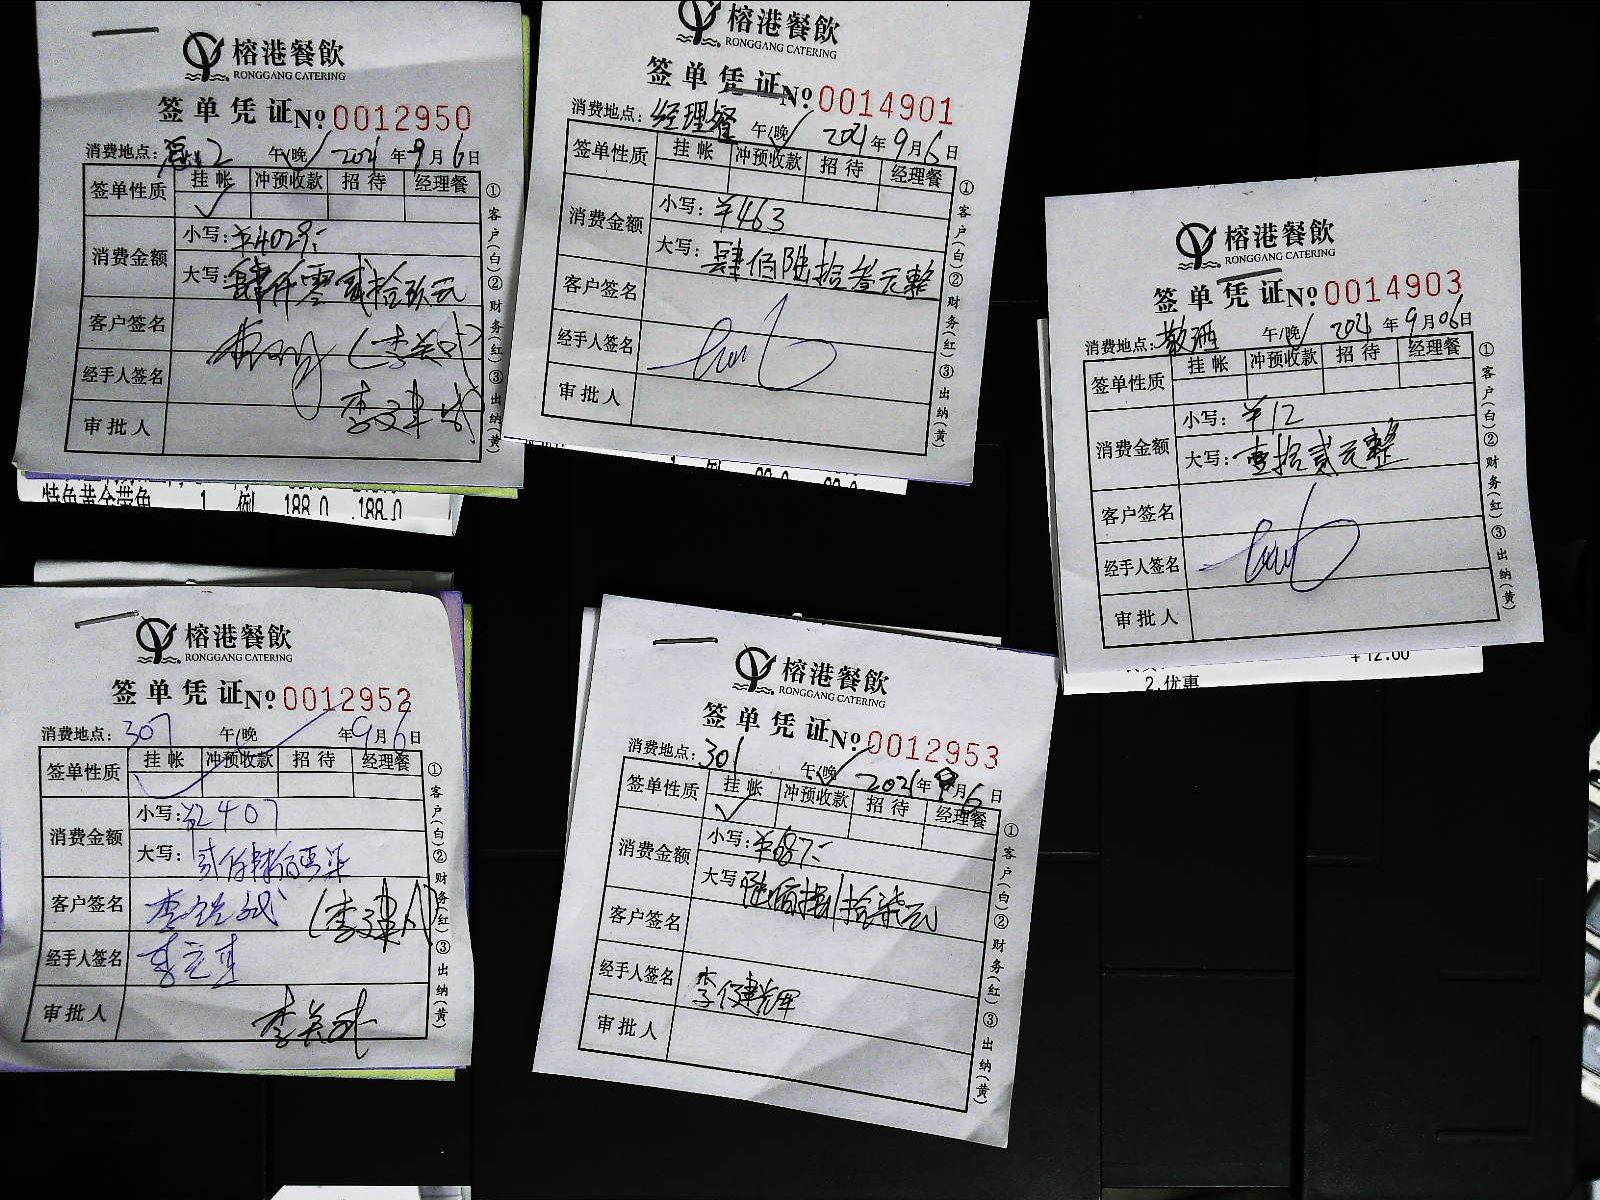 榕港餐飲
RONGGANG CATERING
签单凭证 No 0012950
消费地点: 午/晚 2021年9月6日
签单性质 挂帐 冲预收款 招待 经理餐
消费金额 小写: ¥4029:-
大写: 肆仟零贰拾玖元
客户签名
经手人签名
审批人
①客户(白)②财务(红)③出纳(黄)
特色黄金带鱼 1 例 188.0 188.0
榕港餐飲
RONGGANG CATERING
签单凭证 No 0014901
消费地点: 经理餐 午/晚 2021年9月6日
签单性质 挂帐 冲预收款 招待 经理餐
消费金额 小写: ¥463
大写: 肆佰陆拾叁元整
客户签名
经手人签名
审批人
①客户(白)②财务(红)③出纳(黄)
榕港餐飲
RONGGANG CATERING
签单凭证 No 0014903
消费地点: 散酒 午/晚 2021年9月06日
签单性质 挂帐 冲预收款 招待 经理餐
消费金额 小写: ¥12
大写: 壹拾贰元整
客户签名
经手人签名
审批人
①客户(白)②财务(红)③出纳(黄)
¥12.00
2.优惠
榕港餐飲
RONGGANG CATERING
签单凭证 No 0012952
消费地点: 307 午/晚 年9月6日
签单性质 挂帐 冲预收款 招待 经理餐
消费金额 小写: ¥2407
大写: 贰仟肆佰零柒
客户签名
经手人签名
审批人
①客户(白)②财务(红)③出纳(黄)
榕港餐飲
RONGGANG CATERING
签单凭证 No 0012953
消费地点: 301 午/晚 2021年9月6日
签单性质 挂帐 冲预收款 招待 经理餐
消费金额 小写: ¥687:-
大写 陆佰捌拾柒元
客户签名
经手人签名
审批人
①客户(白)②财务(红)③出纳(黄)